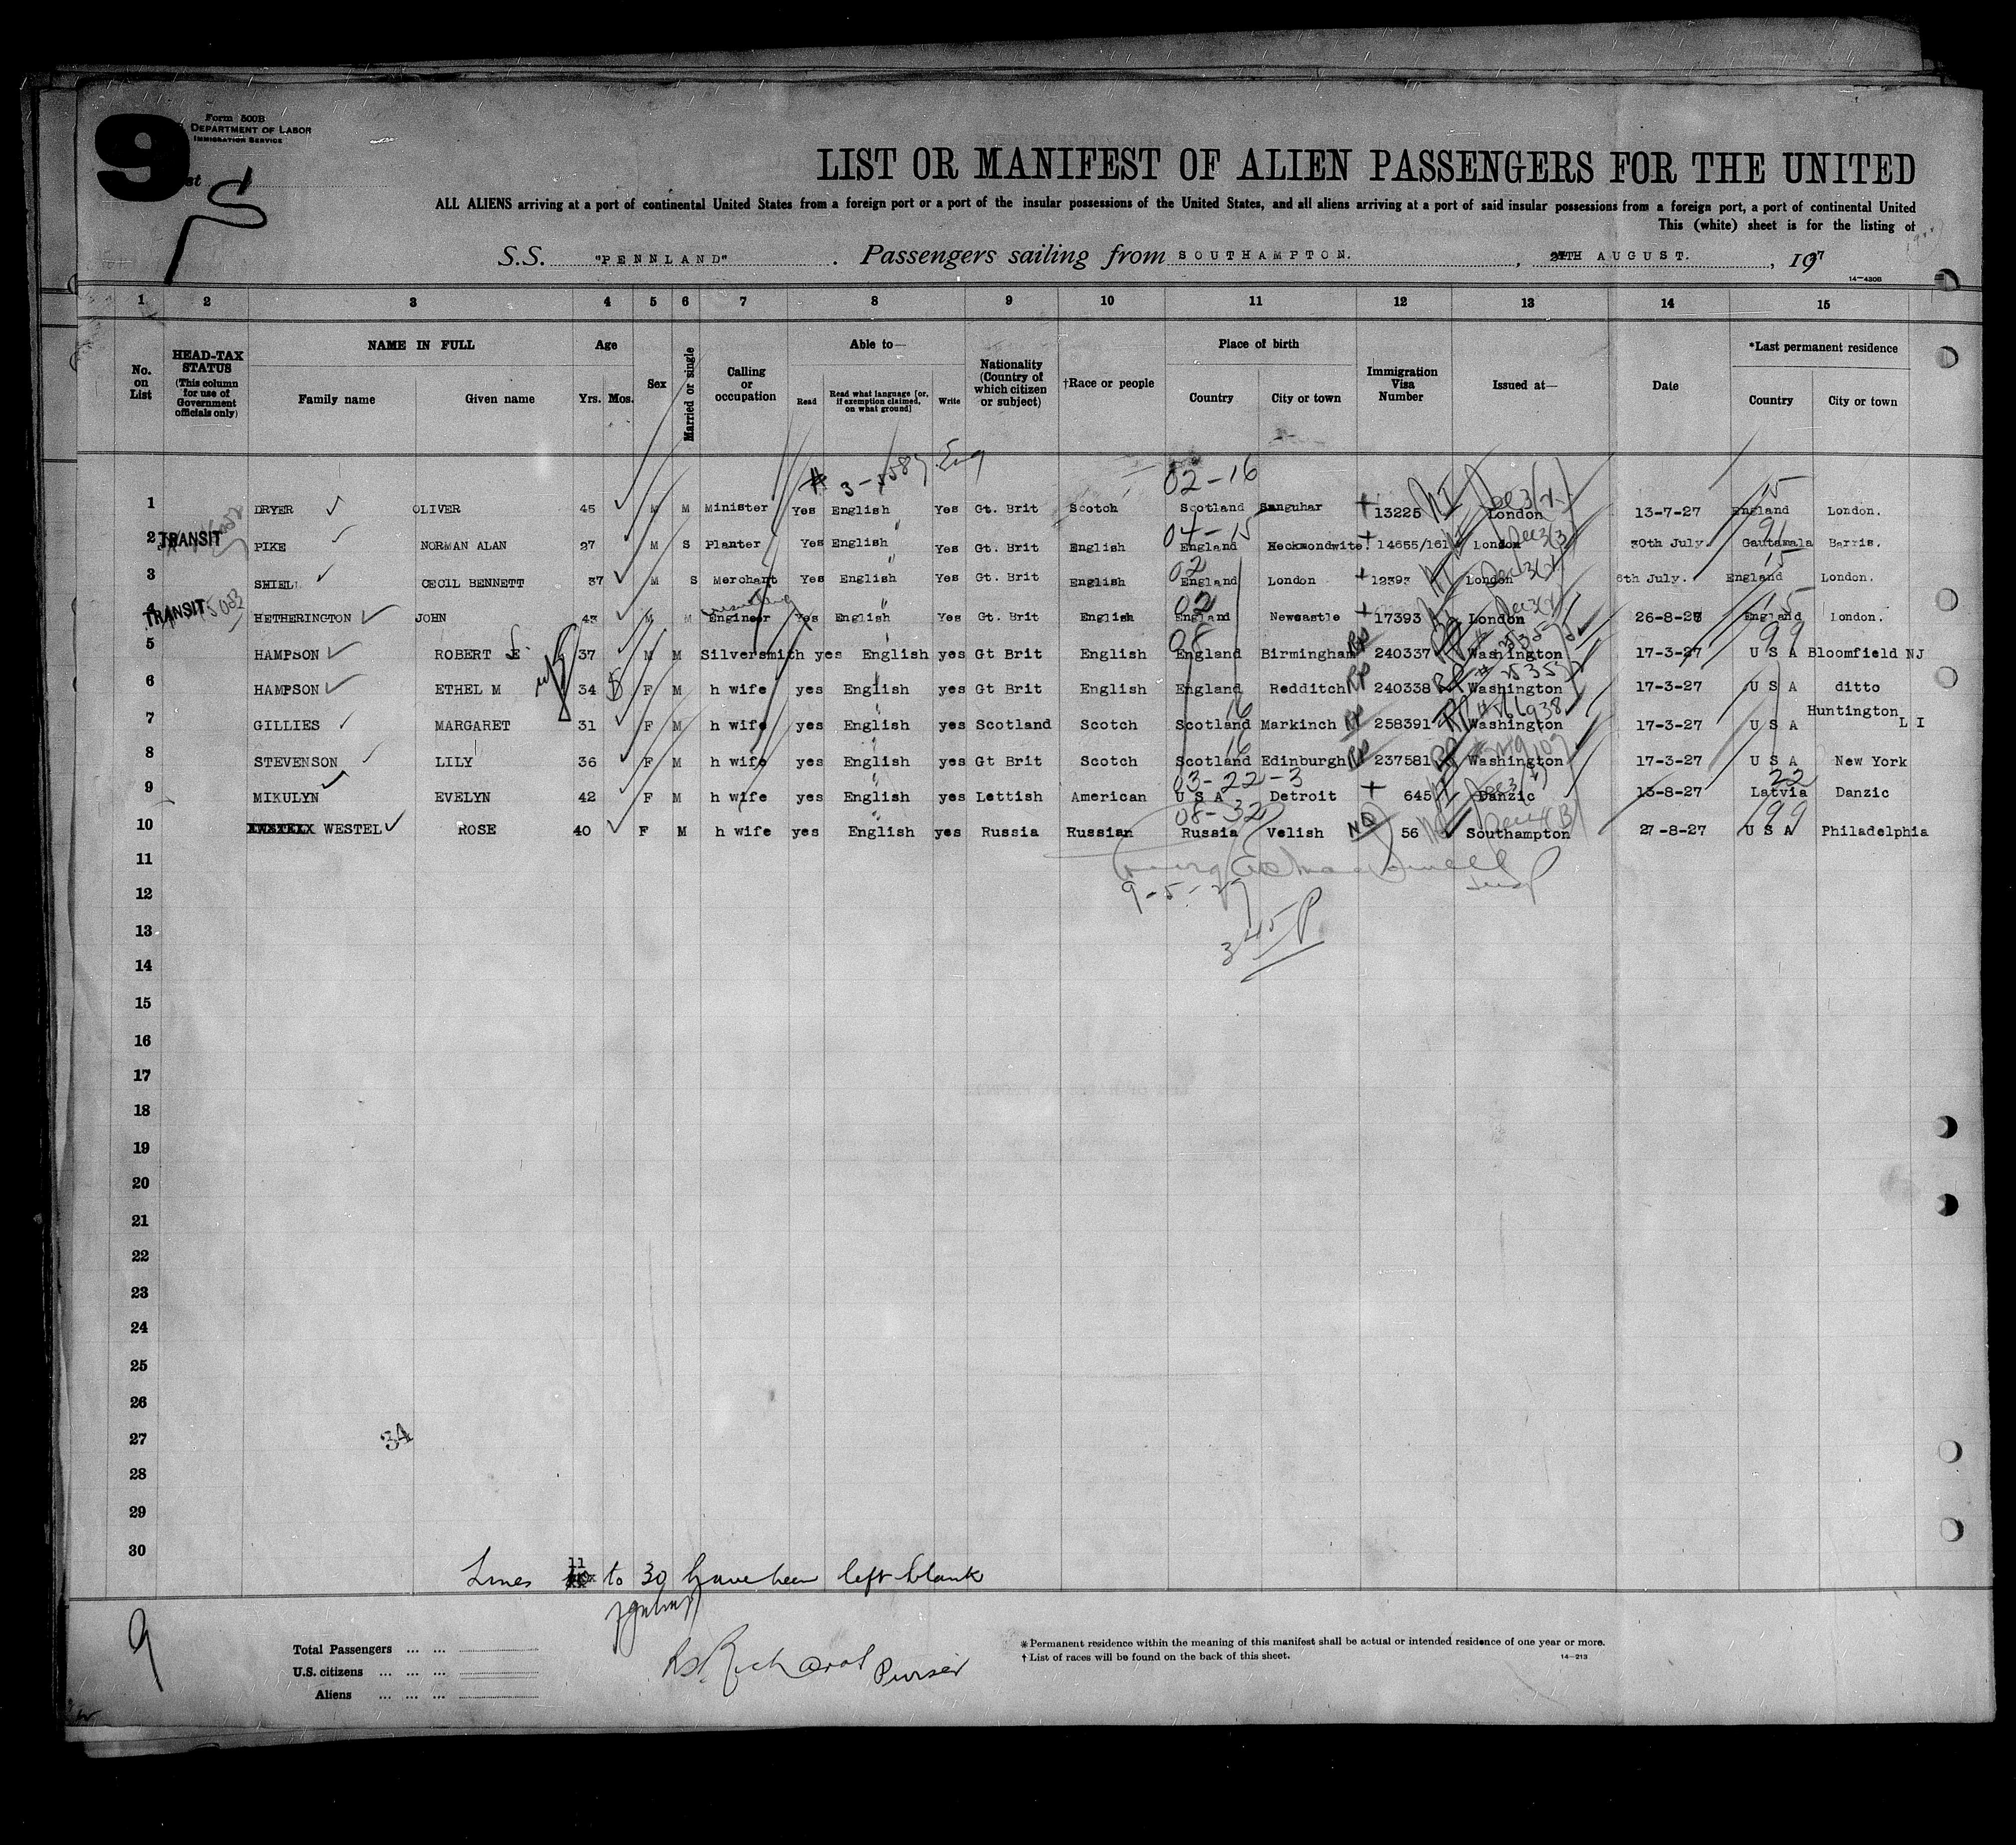 9
Form 500B
DEPARTMENT OF LABOR
IMMIGRATION SERVICE
LIST OR MANIFEST OF ALIEN PASSENGERS FOR THE UNITED
ALL ALIENS arriving at a port of continental United States from a foreign port or a port of the insular possessions of the United States, and all aliens arriving at a port of said insular possessions from a foreign port, a port of continental United
This (white) sheet is for the listing of
S.S. "PENNLAND" . Passengers sailing from SOUTHAMPTON. , TH AUGUST. , 1927
14-430B
1 2 3 4 5 6 7 8 9 10 11 12 13 14 15
No. on List HEAD-TAX STATUS (This column for use of Government officials only) NAME IN FULL Family name Given name Age Yrs. Mos. Sex Married or single Calling or occupation Able to— Read Read what language [or, if exemption claimed, on what ground] Write Nationality (Country of which citizen or subject) †Race or people Place of birth Country City or town Immigration Visa Number Issued at— Date *Last permanent residence Country City or town
02-16 15
1 DRYER OLIVER 45 M M Minister Yes English Yes Gt. Brit Scotch Scotland Sanguhar 13225 London 13-7-27 England London.
04-15
2 TRANSIT PIKE NORMAN ALAN 27 M S Planter Yes English Yes Gt. Brit English England Heckmondwite. 14655/161 London 30th July. Gautamala Barris.
02 15
3 SHIEL CECIL BENNETT 37 M S Merchant Yes English Yes Gt. Brit English England London 12393 London 6th July. England London.
02 15
4 TRANSIT HETHERINGTON JOHN 43 M M Engineer Yes English Yes Gt. Brit English England Newcastle 17393 London 26-8-27 England London.
08 99
5 HAMPSON ROBERT E 37 M M Silversmith yes English yes Gt Brit English England Birmingham 240337 Washington 17-3-27 U S A Bloomfield NJ
6 HAMPSON ETHEL M 34 F M h wife yes English yes Gt Brit English England Redditch 240338 Washington 17-3-27 U S A ditto
16
7 GILLIES MARGARET 31 F M h wife yes English yes Scotland Scotch Scotland Markinch 258391 Washington 17-3-27 U S A Huntington L I
16
8 STEVENSON LILY 36 F M h wife yes English yes Gt Brit Scotch Scotland Edinburgh 237581 Washington 17-3-27 U S A New York
03-22-3 22
9 MIKULYN EVELYN 42 F M h wife yes English yes Lettish American U S A Detroit 645 Danzic 13-8-27 Latvia Danzic
08-32 99
10 WESTEL ROSE 40 F M h wife yes English yes Russia Russian Russia Velish 56 Southampton 27-8-27 U S A Philadelphia
11
12 9-5-27
13
345 P
14
15
16
17
18
19
20
21
22
23
24
25
26
27 34
28
29
30
Lines 11 to 30 have been left blank
9
Total Passengers ... ...
U.S. citizens ... ... ...
Aliens ... ... ...
Purser
* Permanent residence within the meaning of this manifest shall be actual or intended residence of one year or more.
† List of races will be found on the back of this sheet. 14-213